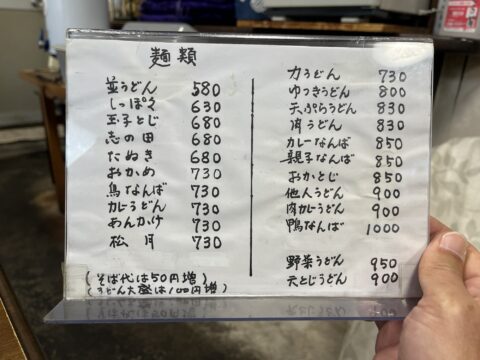 麺類
並うどん 580
しっぽく 630
玉子とじ 680
志の田 680
たぬき 680
おかめ 730
鳥なんば 730
カレうどん 730
あんかけ 730
松月 730
(そば代は50円増)
(うどん大盛は100円増)
力うどん 730
ゆつきうどん 800
天ぷらうどん 830
肉うどん 830
カレーなんば 850
親子なんば 850
おかとじ 850
他人うどん 900
肉カレうどん 900
鴨なんば 1000
野菜うどん 950
天とじうどん 900